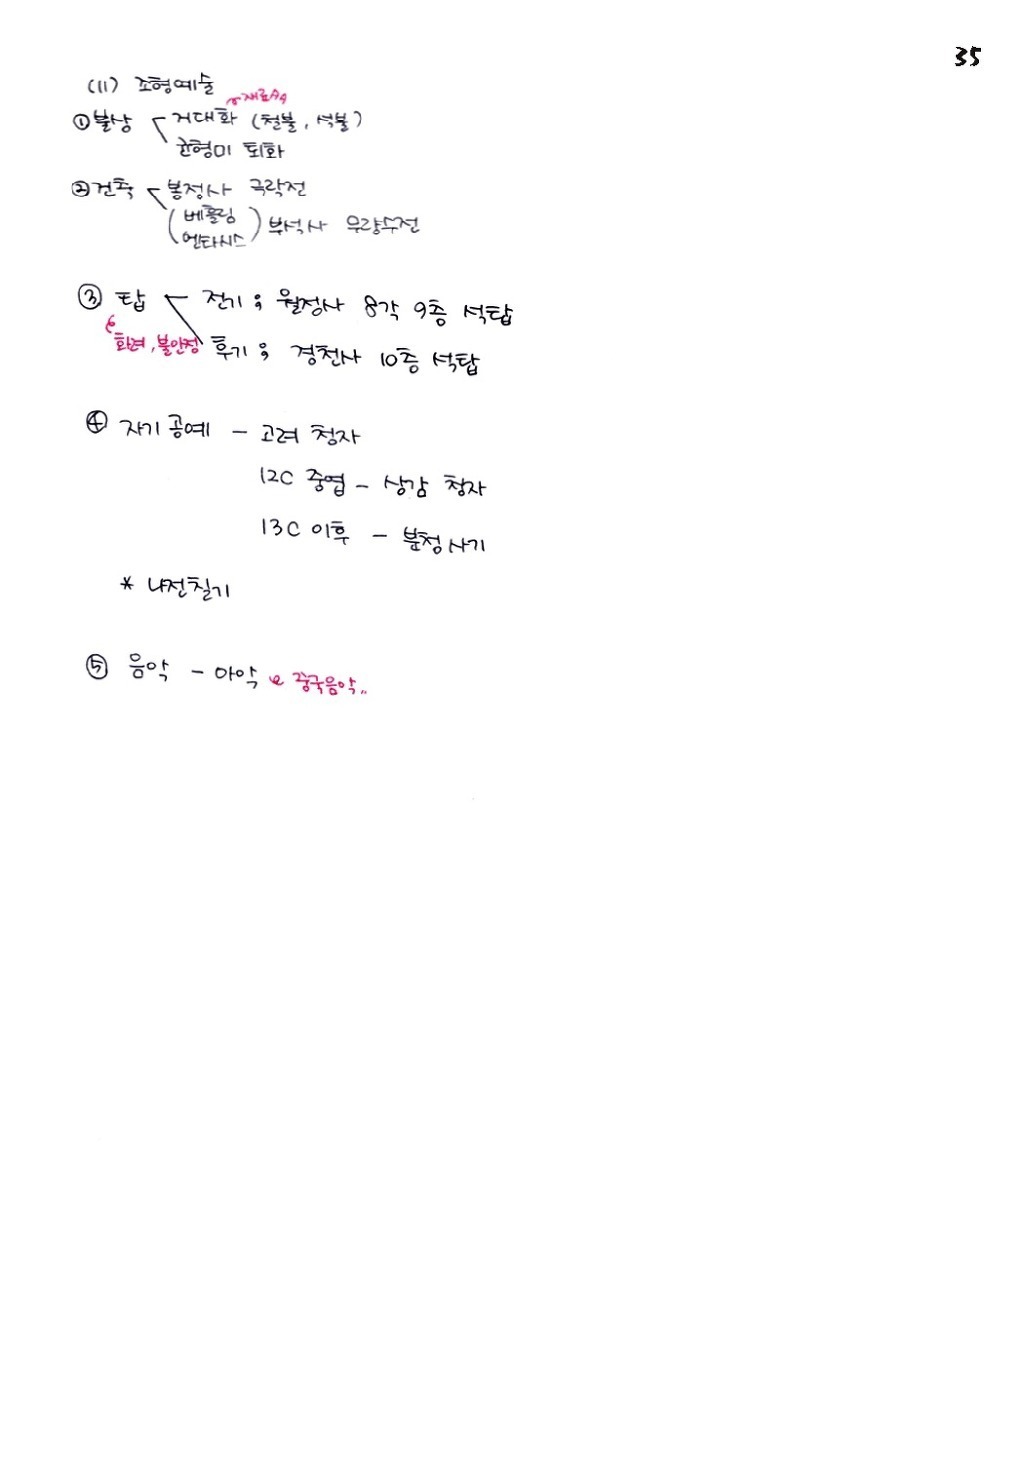 35
(11) 조형예술
① 불상 거대화 (철불, 석불)
균형미 퇴화
② 건축 봉정사 극락전
(베흘림 엔타시스) 부석사 무량수전
③ 탑 전기 ; 월정사 8각 9층 석탑
화려, 불안정 후기 ; 경천사 10층 석탑
④ 자기 공예 - 고려 청자
12C 중엽 - 상감 청자
13C 이후 - 분청사기
* 나전칠기
⑤ 음악 - 아악 중국음악..